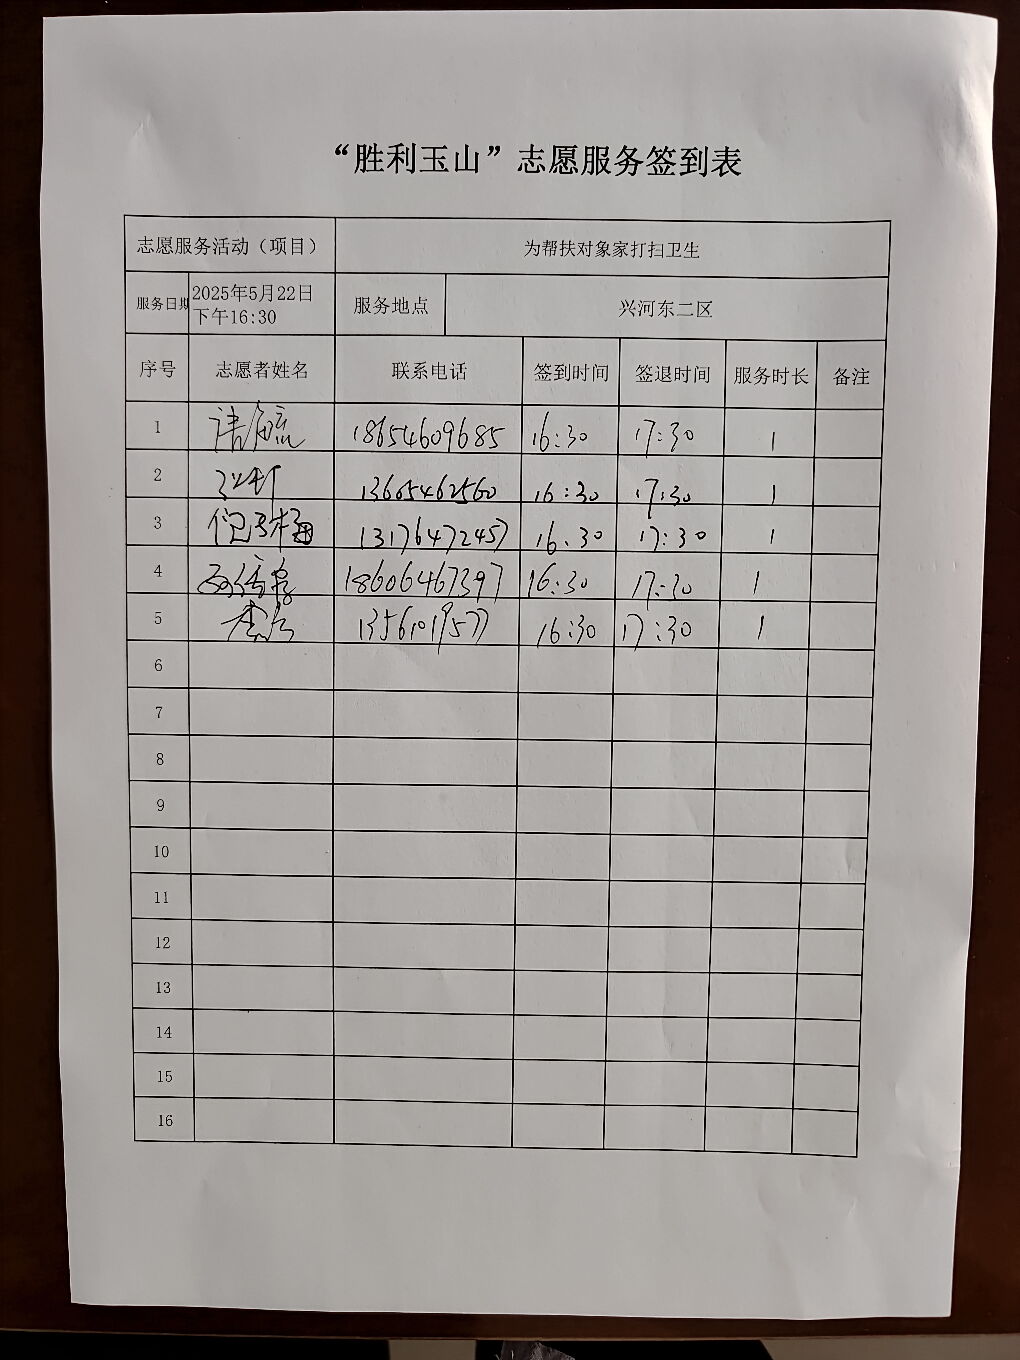 “胜利玉山”志愿服务签到表
志愿服务活动（项目） 为帮扶对象家打扫卫生
服务日期 2025年5月22日 下午16:30 服务地点 兴河东二区
序号 志愿者姓名 联系电话 签到时间 签退时间 服务时长 备注
1 18654609685 16:30 17:30 1
2 13605462560 16:30 17:30 1
3 13176472457 16:30 17:30 1
4 18606467397 16:30 17:30 1
5 16:30 17:30 1
6
7
8
9
10
11
12
13
14
15
16